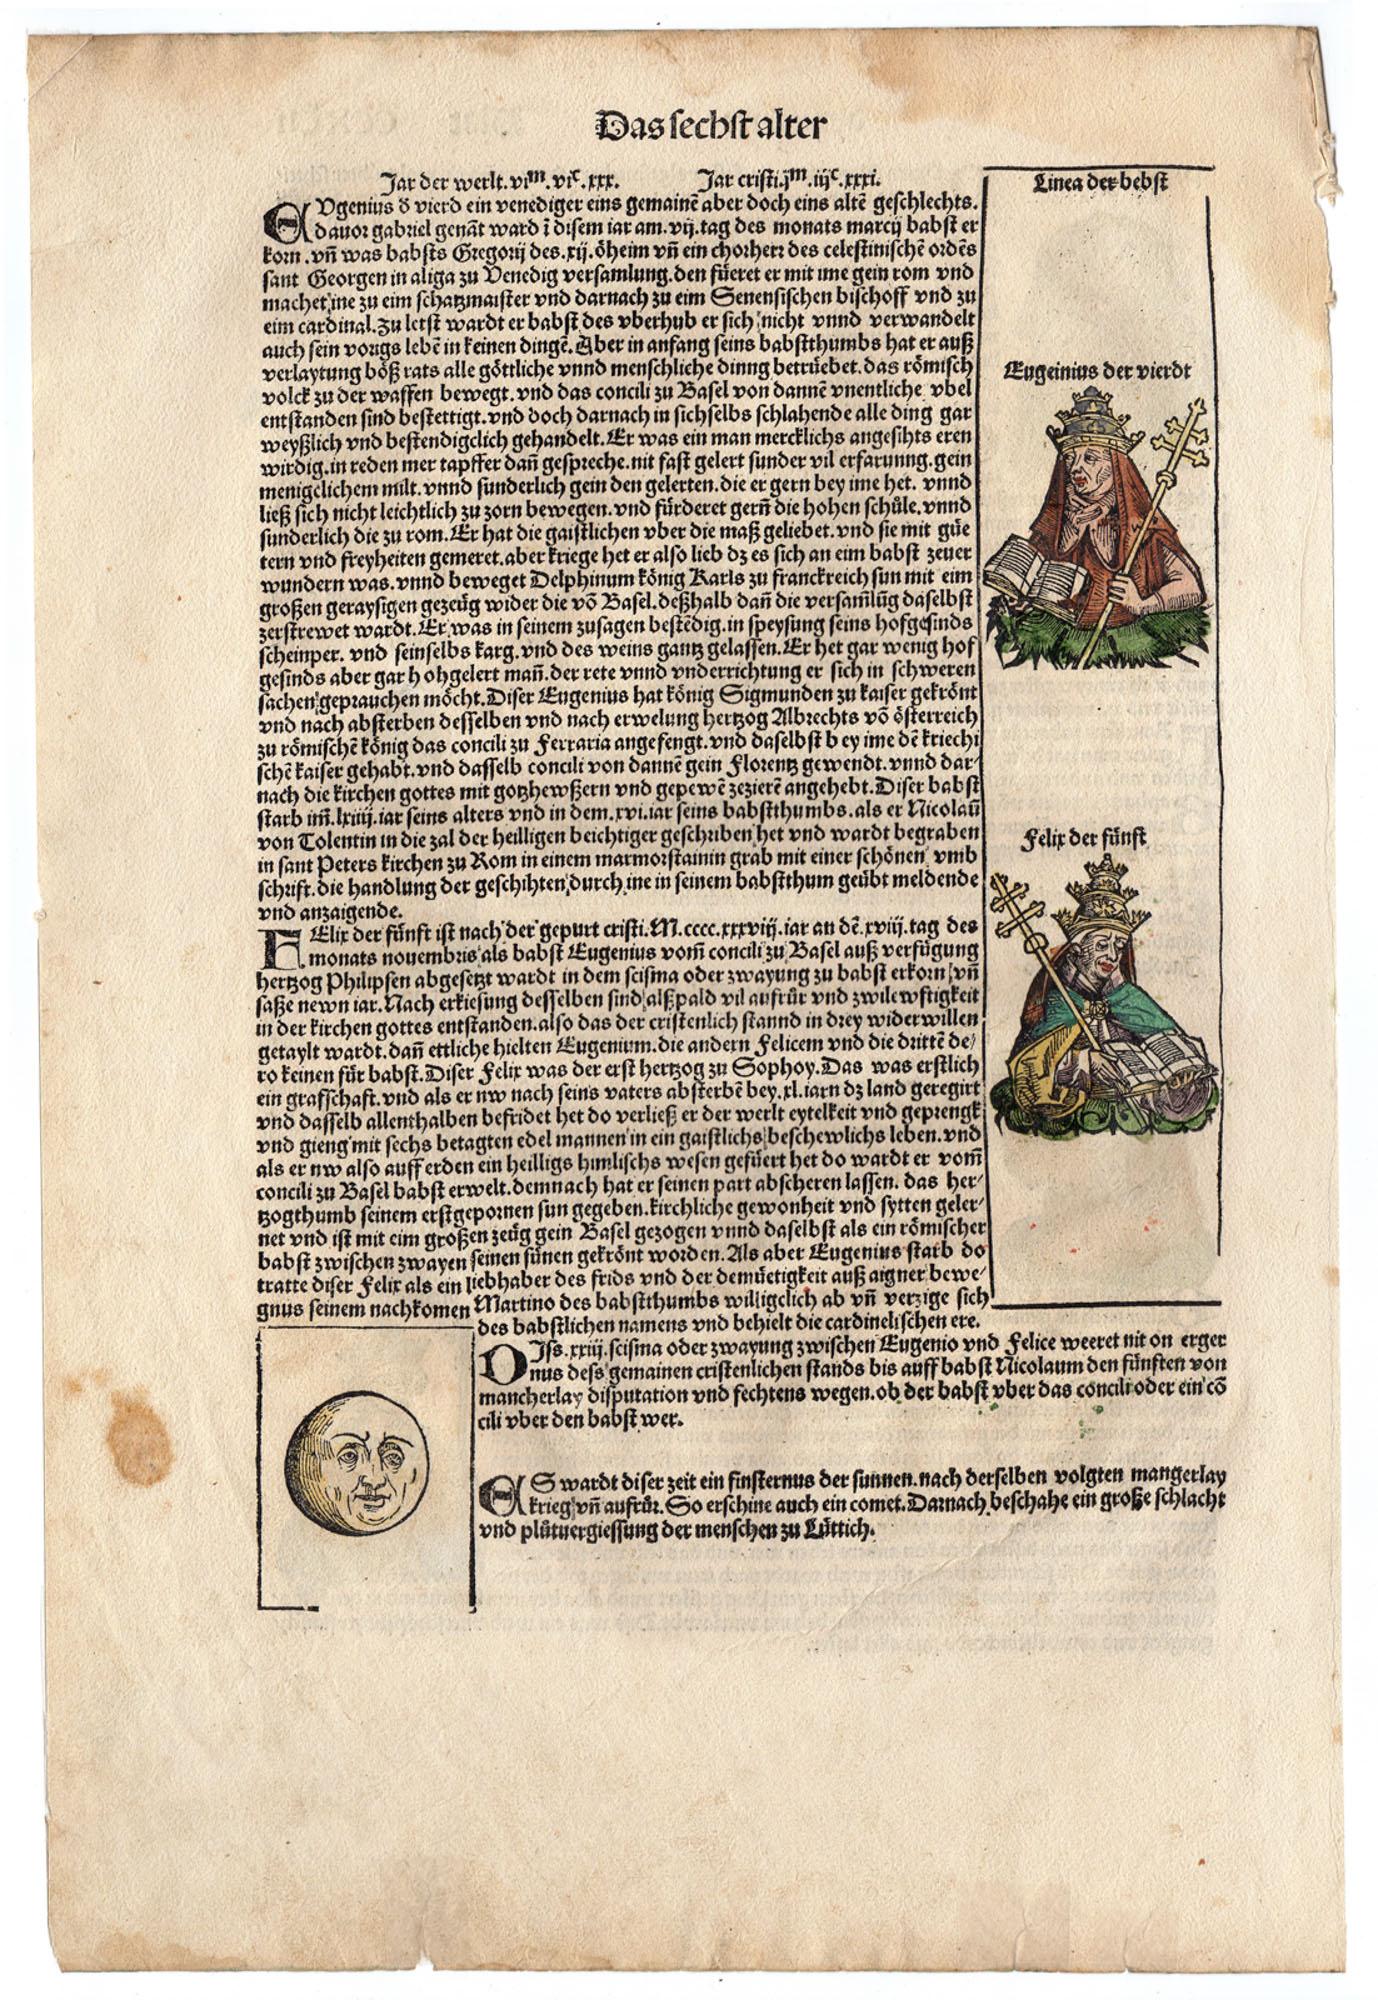 Das sechst alter
Jar der werlt.vim.vic.xxx. Jar cristi.jm.iiijc.xxxi.
Linea der bebst
EVgenius d̕ vierd ein venediger eins gemainē aber doch eins altē geschlechts.
davor gabriel genāt ward ī disem iar am.vij.tag des monats marcij babst er
korn.vn̄ was babsts Gregorij des.xij.öheim vn̄ ein chorherr des celestinischē ordēs
sant Georgen in aliga zu Venedig versamlung.den füeret er mit ime gein rom vnd
machet ine zu eim schatzmaister vnd darnach zu eim Senensischen bischoff vnd zu
eim cardinal.Zu letst wardt er babst des vberhub er sich nicht vnnd verwandelt
auch sein vorigs lebē in keinen dingē.Aber in anfang seins babstthumbs hat er auß
verlaytung böß rats alle göttliche vnnd menschliche dinng betrüebet.das römisch
volck zu der waffen bewegt.vnd das concili zu Basel von dannē vnentliche vbel
entstanden sind bestettigt.vnd doch darnach in sichselbs schlahende alle ding gar
weyßlich vnd bestendigclich gehandelt.Er was ein man mercklichs angesihts eren
wirdig.in reden mer tapffer dan̄ gespreche.nit fast gelert sunder vil erfarunng.gein
menigclichem milt.vnnd sunderlich gein den gelerten.die er gern bey ime het.vnnd
ließ sich nicht leichtlich zu zorn bewegen.vnd fürderet gern̄ die hohen schůle.vnnd
sunderlich die zu rom.Er hat die gaistlichen vber die maß geliebet.vnd sie mit güe
tern vnd freyheiten gemeret.aber kriege het er also lieb dz es sich an eim babst zeuer
wundern was.vnnd beweget Delphinum könig Karls zu franckreich sun mit eim
großen geraysigen gezeüg wider die vō Basel.deßhalb dan̄ die versam̄lūg daselbst
zerstrewet wardt.Er was in seinem zusagen bestēdig.in speysung seins hofgesinds
scheinper.vnd seinselbs karg.vnd des weins gantz gelassen.Er het gar wenig hof
gesinds aber gar hohgelert man̄.der rete vnnd vnderrichtung er sich in schweren
sachen geprauchen möcht.Diser Eugenius hat könig Sigmunden zu kaiser gekrönt
vnd nach absterben desselben vnd nach erwelung hertzog Albrechts vō österreich
zu römischē könig das concili zu Ferraria angefengt.vnd daselbst bey ime dē kriechi
schē kaiser gehabt.vnd dasselb concili von dannē gein Florentz gewendt.vnnd dar-
nach die kirchen gottes mit gotzhewßern vnd gepewē zezierē angehebt.Diser babst
starb im̄.lxiiij.iar seins alters vnd in dem.xvi.iar seins babstthumbs.als er Nicolaū
von Tolentin in die zal der heilligen beichtiger geschriben het vnd wardt begraben
in sant Peters kirchen zu Rom in einem marmorstainin grab mit einer schönen vmb
schrift.die handlung der geschihten durch ine in seinem babstthum geübt meldende
vnd anzaigende.
Eugeinius der vierdt
Felix der fünft
FElix der fünft ist nach der gepurt cristi.M.cccc.xxxviij.iar an dē.xviij.tag des
monats novembris als babst Eugenius vom̄ concili zu Basel auß verfügung
hertzog Philipsen abgesetzt wardt in dem scisma oder zwayung zu babst erkorn vn̄
saße newn iar.Nach erkiesung desselben sind alßpald vil aufrůr vnd zwilewftigkeit
in der kirchen gottes entstanden.also das der cristenlich stannd in drey widerwillen
getaylt wardt.dan̄ ettliche hielten Eugenium.die andern Felicem vnd die drittē de-
ro keinen für babst.Diser Felix was der erst hertzog zu Sophoy.Das was erstlich
ein grafschaft.vnd als er nw nach seins vaters absterbē bey.xl.iarn dz land geregirt
vnd dasselb allenthalben befridet het do verließ er der werlt eytelkeit vnd geprengk
vnd gieng mit sechs betagten edel mannen in ein gaistlichs beschewlichs leben.vnd
als er nw also auff erden ein heilligs himlischs wesen gefüert het do wardt er vom̄
concili zu Basel babst erwelt.demnach hat er seinen part abscheren lassen.das her-
tzogthumb seinem erstgepornen sun gegeben.kirchliche gewonheit vnd sytten geler-
net vnd ist mit eim großen zeüg gein Basel gezogen vnnd daselbst als ein römischer
babst zwischen zwayen seinen sünen gekrönt worden.Als aber Eugenius starb do
tratte diser Felix als ein liebhaber des frids vnd der demüetigkeit auß aigner bewe-
gnus seinem nachkomen Martino des babstthumbs willigclich ab vn̄ verzige sich
des babstlichen namens vnd behielt die cardinelischen ere.
DIss.xxiij.scisma oder zwayung zwischen Eugenio vnd Felice weeret nit on erger
nus dess gemainen cristenlichen stands bis auff babst Nicolaum den fünften von
mancherlay disputation vnd fechtens wegen.ob der babst vber das concili oder ein cō
cili vber den babst wer.
ES wardt diser zeit ein finsternus der sunnen.nach derselben volgten mangerlay
krieg vn̄ aufrůr.So erschine auch ein comet.Darnach beschahe ein große schlacht
vnd plůtuergiessung der menschen zu Lüttich.